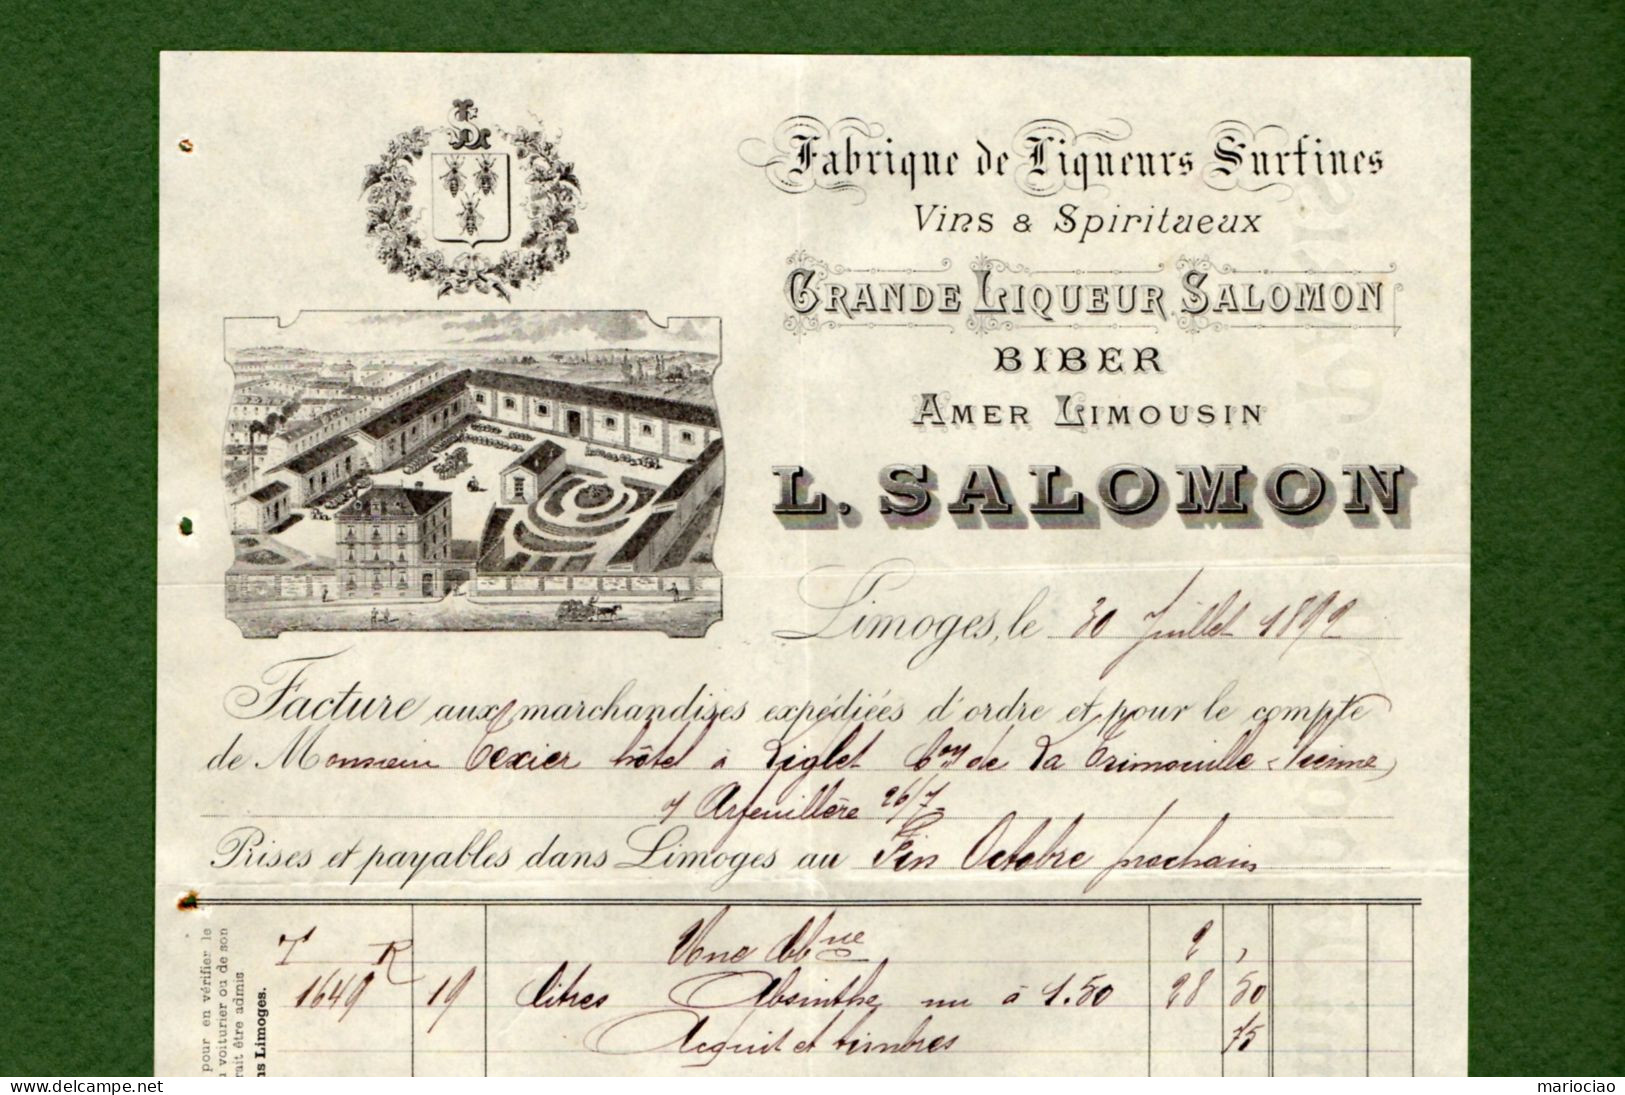 LS
Fabrique de Liqueurs Surfines
Vins & Spiritueux
GRANDE LIQUEUR SALOMON
BIBER
AMER LIMOUSIN
L. SALOMON
Limoges, le 30 Juillet 1892
Facture aux marchandises expédiées d'ordre et pour le compte
de Monsieur Texier hôtel à Liglet Con de La Trimouille (Vienne)
Arfeuillère 26/7
Prises et payables dans Limoges au Fin Octobre prochain
pour en vérifier le
voiturier ou de son
rait être admis
ns Limoges.
T R Une 2 ,
1649 19 litres Absinthe nu à 1.50 28 50
Acquit et timbres 75
mariociao